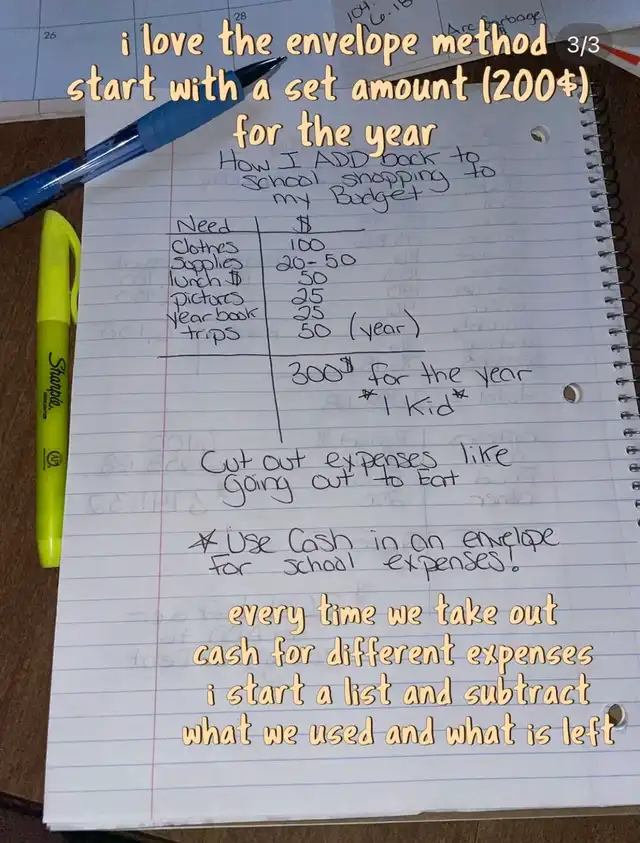 26
28
104
6.18
Arc Garbage
3/3
i love the envelope method
start with a set amount (200$)
for the year
How I ADD back to
school shopping to
my Budget
Need $
Clothes 100
Supplies 20-50
lunch $ 50
pictures 25
year book 25
trips 50 (year)
300$ for the year
*1 Kid*
Cut out expenses like
going out to Eat
*Use Cash in an envelope
for school expenses!
Sharpie
every time we take out
cash for different expenses
i start a list and subtract
what we used and what is left